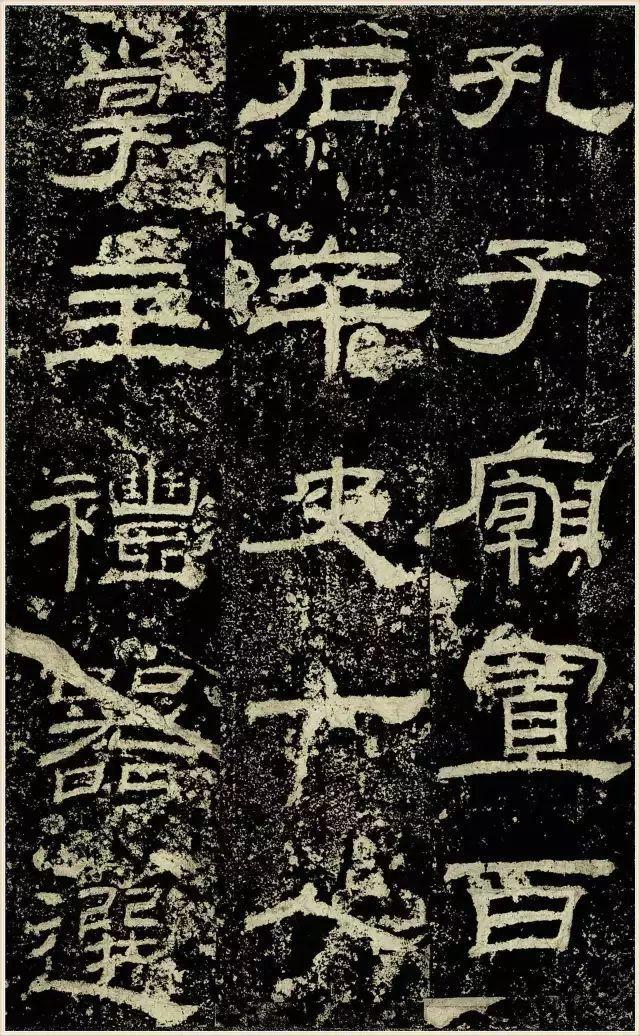 孔子廟置百
石卒史一人
掌主禮器選